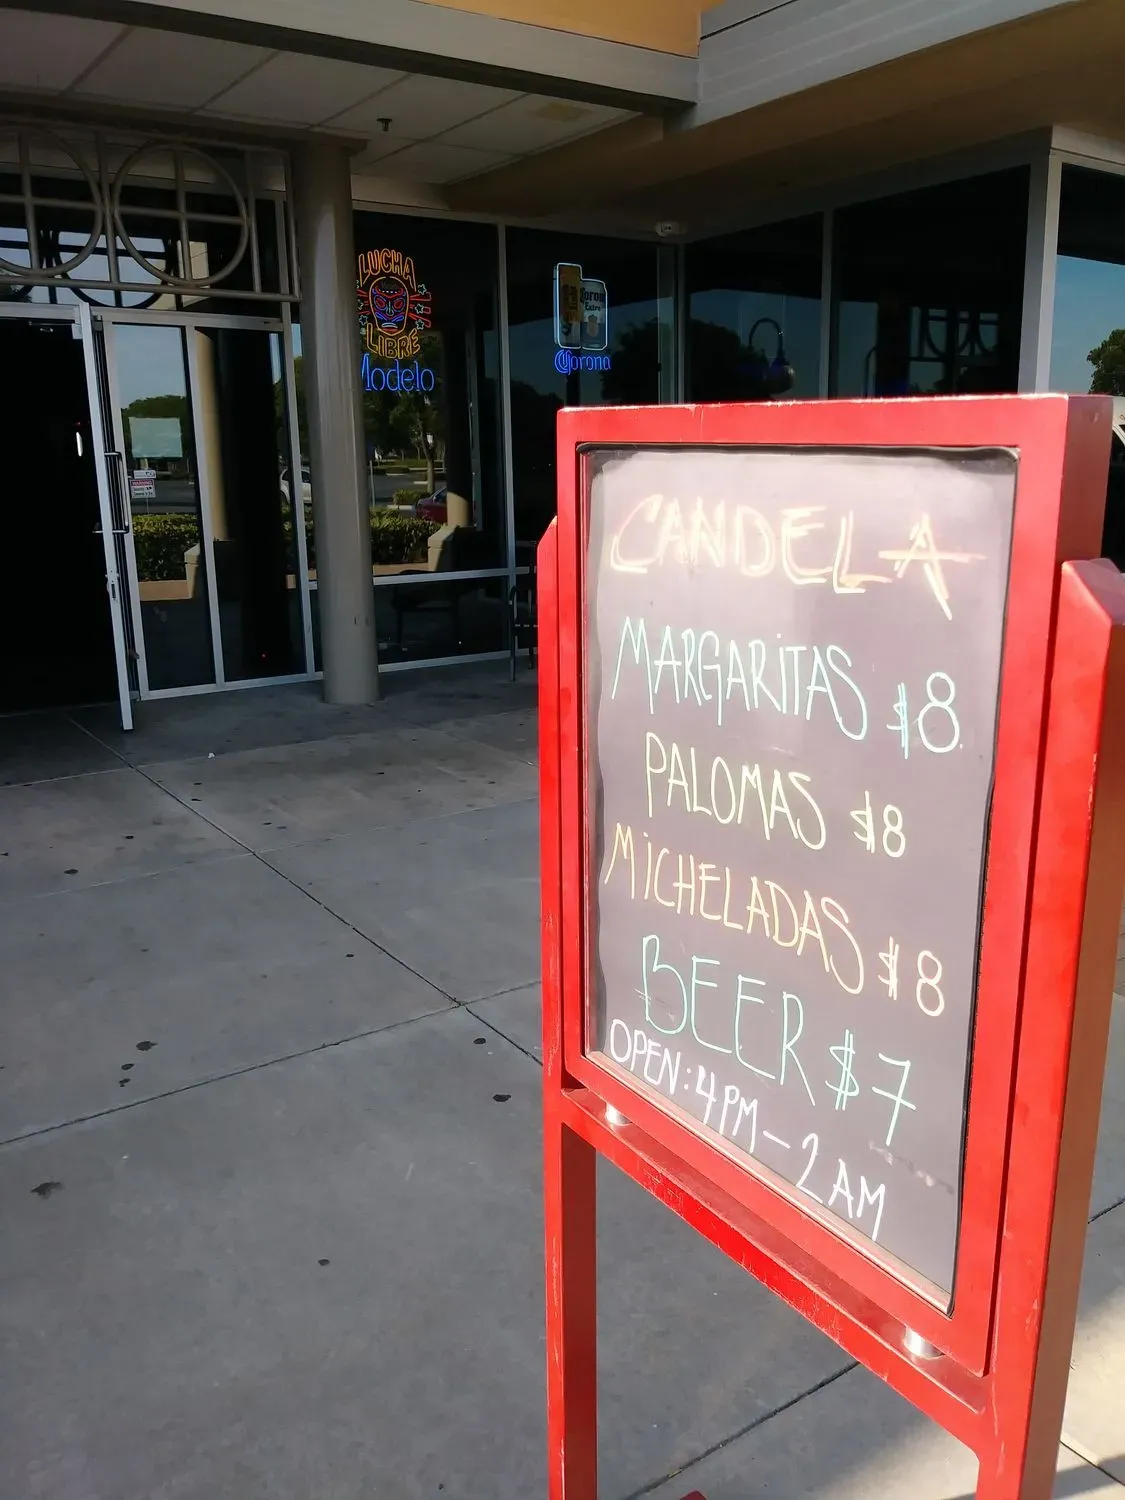 LUCHA
LIBRE
Modelo
Corona
Extra
Corona
WARNING
CANDELA
MARGARITAS $8
PALOMAS $8
MICHELADAS $8
BEER $7
OPEN: 4PM - 2AM